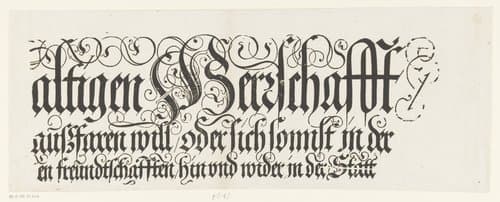 altigen Werschafft
außfaren will oder sich sonnst in der
en freundtschafften hin vnd wider in der Stätt